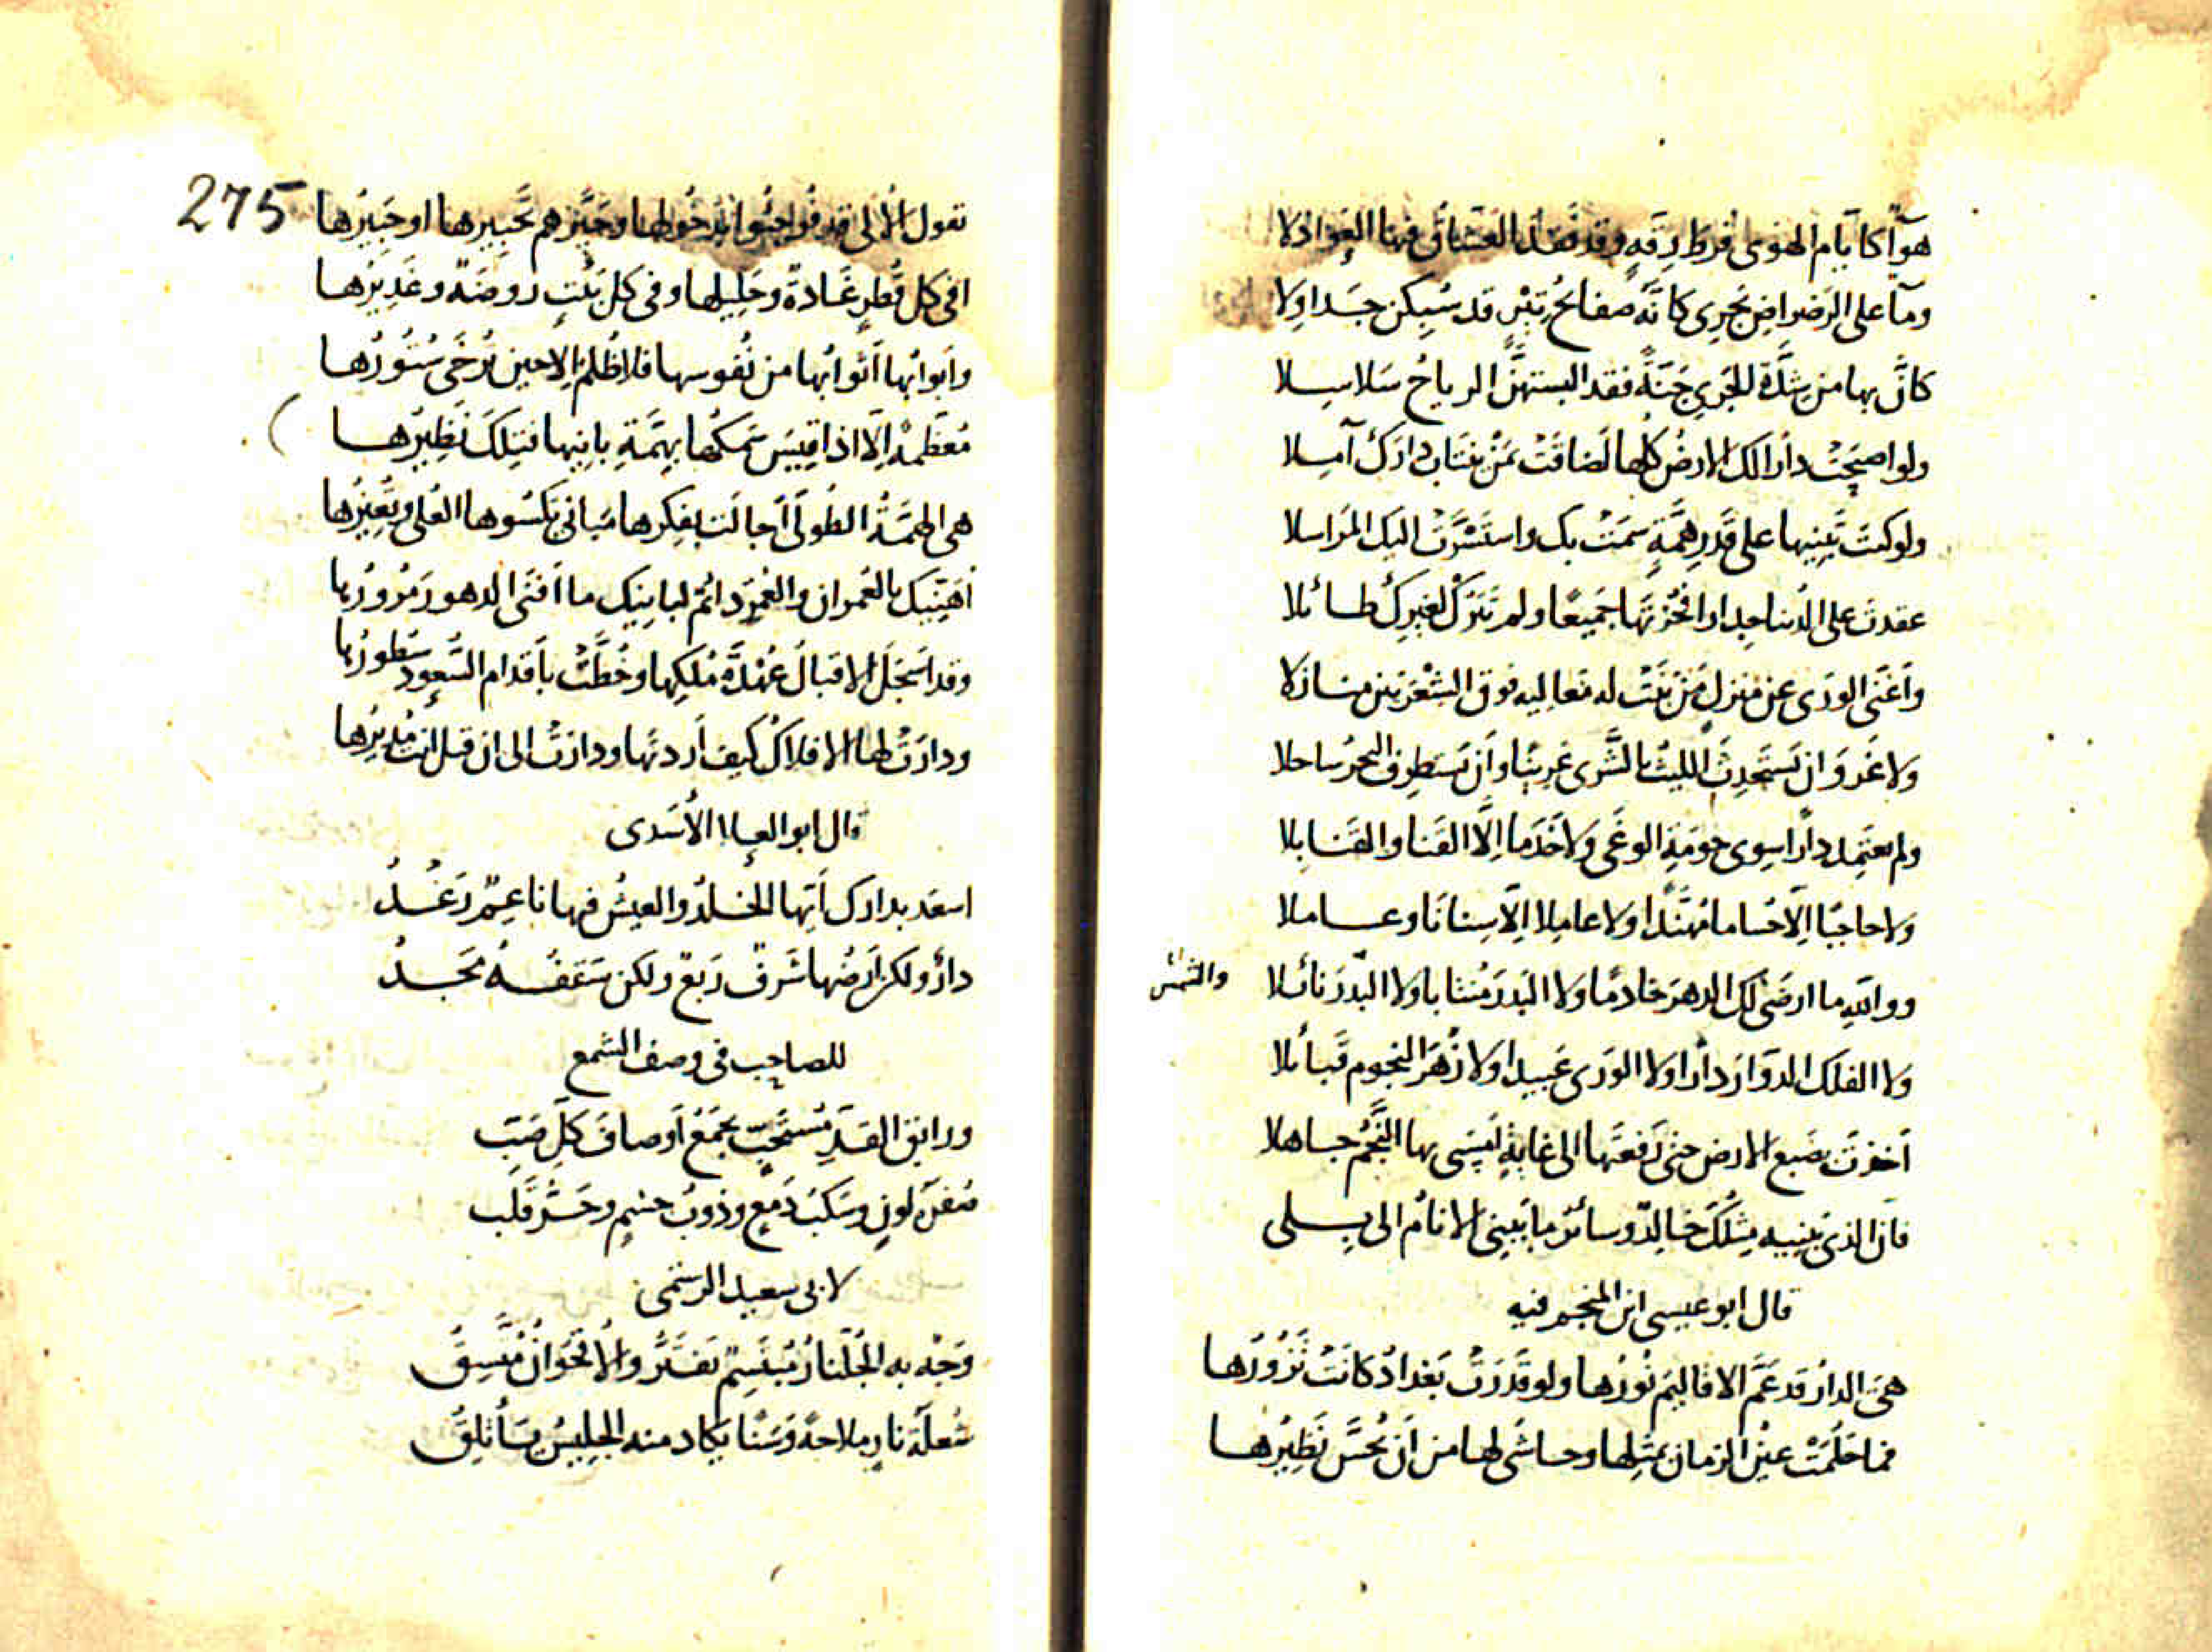 هوآ كايام الهوى فرط رقه وقد فقد العشاق فيها العواذلا
ومآ على الرضراض يجري كانه صفائح تبر قد سُبكن جداولا
كانّ بها من شدّة الجَرى جَنّةً فقد البستهنّ الرياح سَلاسلا
ولو اصبَحت دارالك الارضُ كلها لَضاقَت بمَن ينتاب دارك آمِلا
ولو كنتَ تَبنيها على قَدرِ همَّةٍ سَمَت بك واستَسْرَت اليك المَراسلا
عقدتَ على الدُنيا جدارا فحُزتَها جَميعًا ولم تَترك لغيرك طائلا
واَغنَى الورَى عن منزلٍ مَن بَنَت له مَعاليه فوق الشعْريَين منازلا
ولا غَروَ ان يَستَحدِثَ الليثُ بالشَّرى عَرينًا وأن يَستَطرف البحرُ ساحلا
ولم يعتمِد دارا سِوى حومَةِ الوغَى ولا خَدَما اِلّا القَنا والقَنابلا
ولا حاجبًا اِلّا حُساما مُهنّدا ولا عاملا اِلّا سِنانًا وعاملا
ووالله ما ارضَى لك الدهرَ خادمًا ولا البَدرَ مُنتابا ولا البدرَ نائلا
والشمس
ولا الفلك الدوّارَ دارا ولا الورَى عَبيدا ولا زُهرَ النجوم قَبائلا
اَخذتَ بضَبع الارض حتى رَفعتَها الى غايةٍ اَمسَى بها النَّجمُ جاهلا
فان الذى يَبنيه مِثلُكَ خالدٌ وسائرُ ما يَبنى الانامُ الى بِلى
قال ابو عيسى ابن المنجم فيه
هىَ الدارُ قد عَمَّ الاقاليمَ نُورُها ولو قَدَرَت بَغدادُ كانَت تَزُورُها
فما حَلُمَت عينُ الزمان بمثلها وحاشى لها من ان يُحسَّ نَظيرُها
275
تقول الأُلى قد فُوجئُوا بدخُولها وحَيَّرهم تَحبيرها او حَبيرُها
افى كل قُطرٍ غَادةٌ وحليلها وفى كل بَيتٍ روضَةٌ وغَديرُها
وابوابُها اَثوابُها من نُقوسها فلا ظُلمَ اِلا حين تُرخَى سُتُورُها
مُعَظَّمةٌ اِلّا اذا قيسَ سَمكُها بهِمَّةِ بانيها فتلكَ نَظيرُها
هى الهمَّةُ الطُولَى اَجالَت بفِكرها مَبانىَ تَكسُوها العُلى وتُعيرُها
اُهَنّيك بالعُمران والعُمرُ دائمٌ لبانيك ما اَفنَى الدهورَ مُرورُها
وقد اَسجَلَ الاقبالُ عُهدَةَ مُلكِها وخُطَّت باَقدام السُّعود سُطورُها
ودارَت لها الافلاكُ كيف اَردتَها ودارَت الى ان قيل انت مُديرُها
قال ابو العلا الأسَدى
اسعَد بدارك اَنها الخلدُ والعيشُ فيها ناعمٌ رَغدُ
دارٌ ولكن اَرضُها شَرفٌ رَبعٌ ولكن سَقفُه مَجدُ
للصاحب فى وصف الشمع
ورائق القدِّ مُستَحبٍّ يَجمَعُ اَوصافَ كلِّ صَبِّ
صُفرَة لونٍ وسَكبُ دَمعٍ وذوبُ جسمٍ وحَرّ قَلب
لابى سعيد الرستمى
وَجهٌ به الجُلّنارُ مُبتَسِمٌ يَفتَرُّ والاُقحُوانُ مُتَّسِقُ
شُعلَة نارٍ ملاحةً وَسَنًا يكاد منه الجليسُ يَأتلقُ